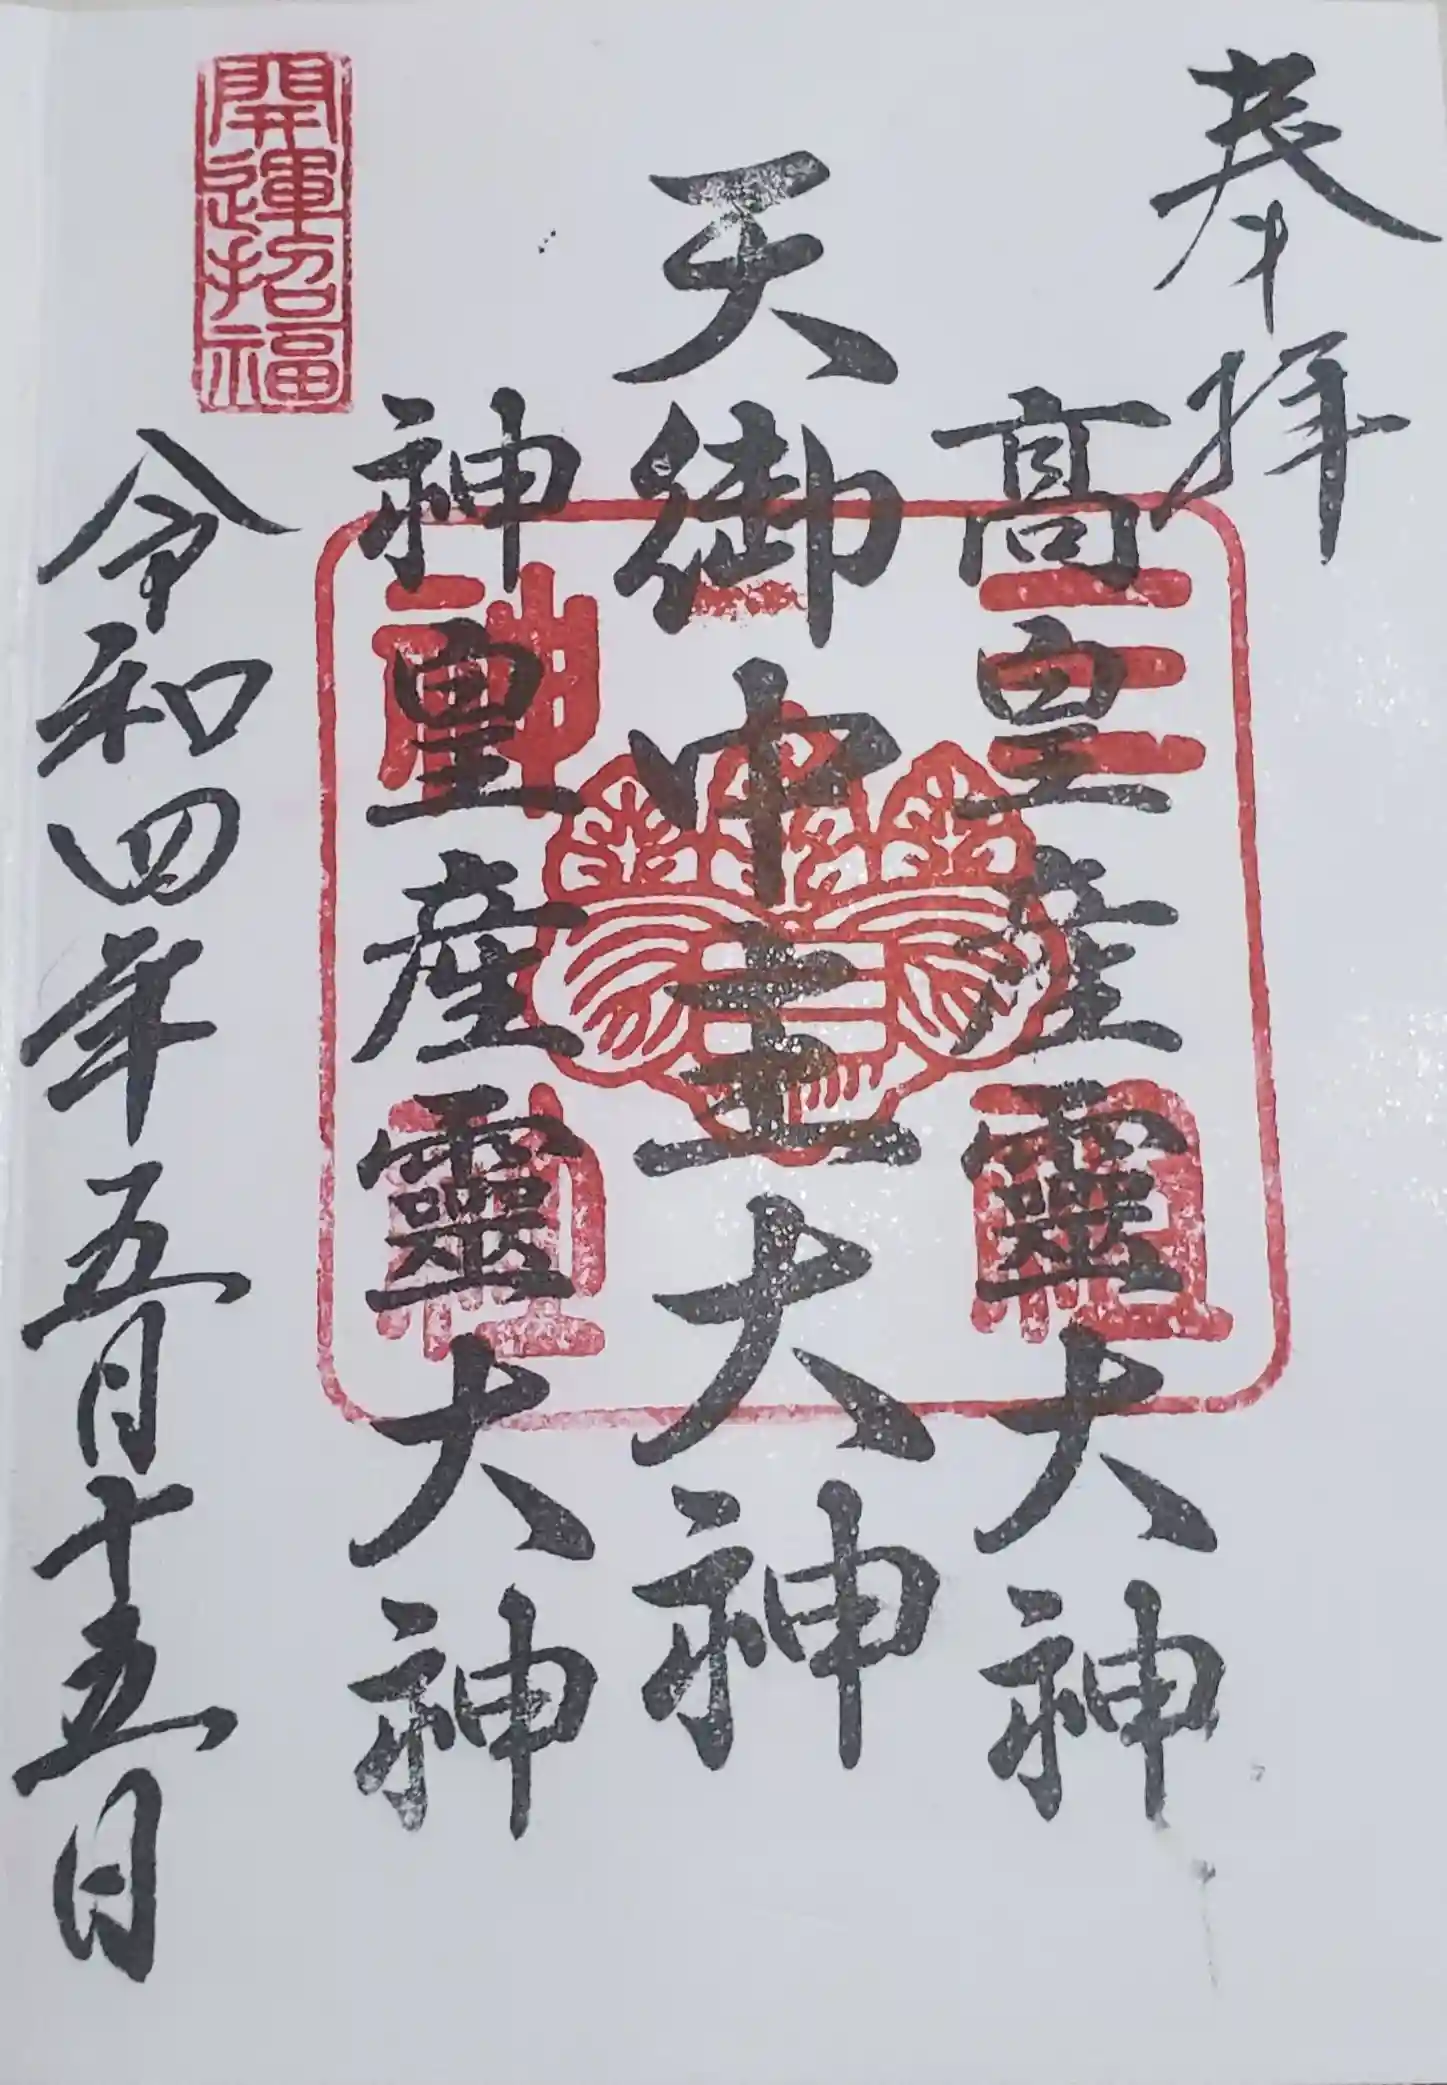 奉拝
高皇産靈大神
天御中主大神
神皇産靈大神
開運招福
令和四年五月十五日
三神
神社